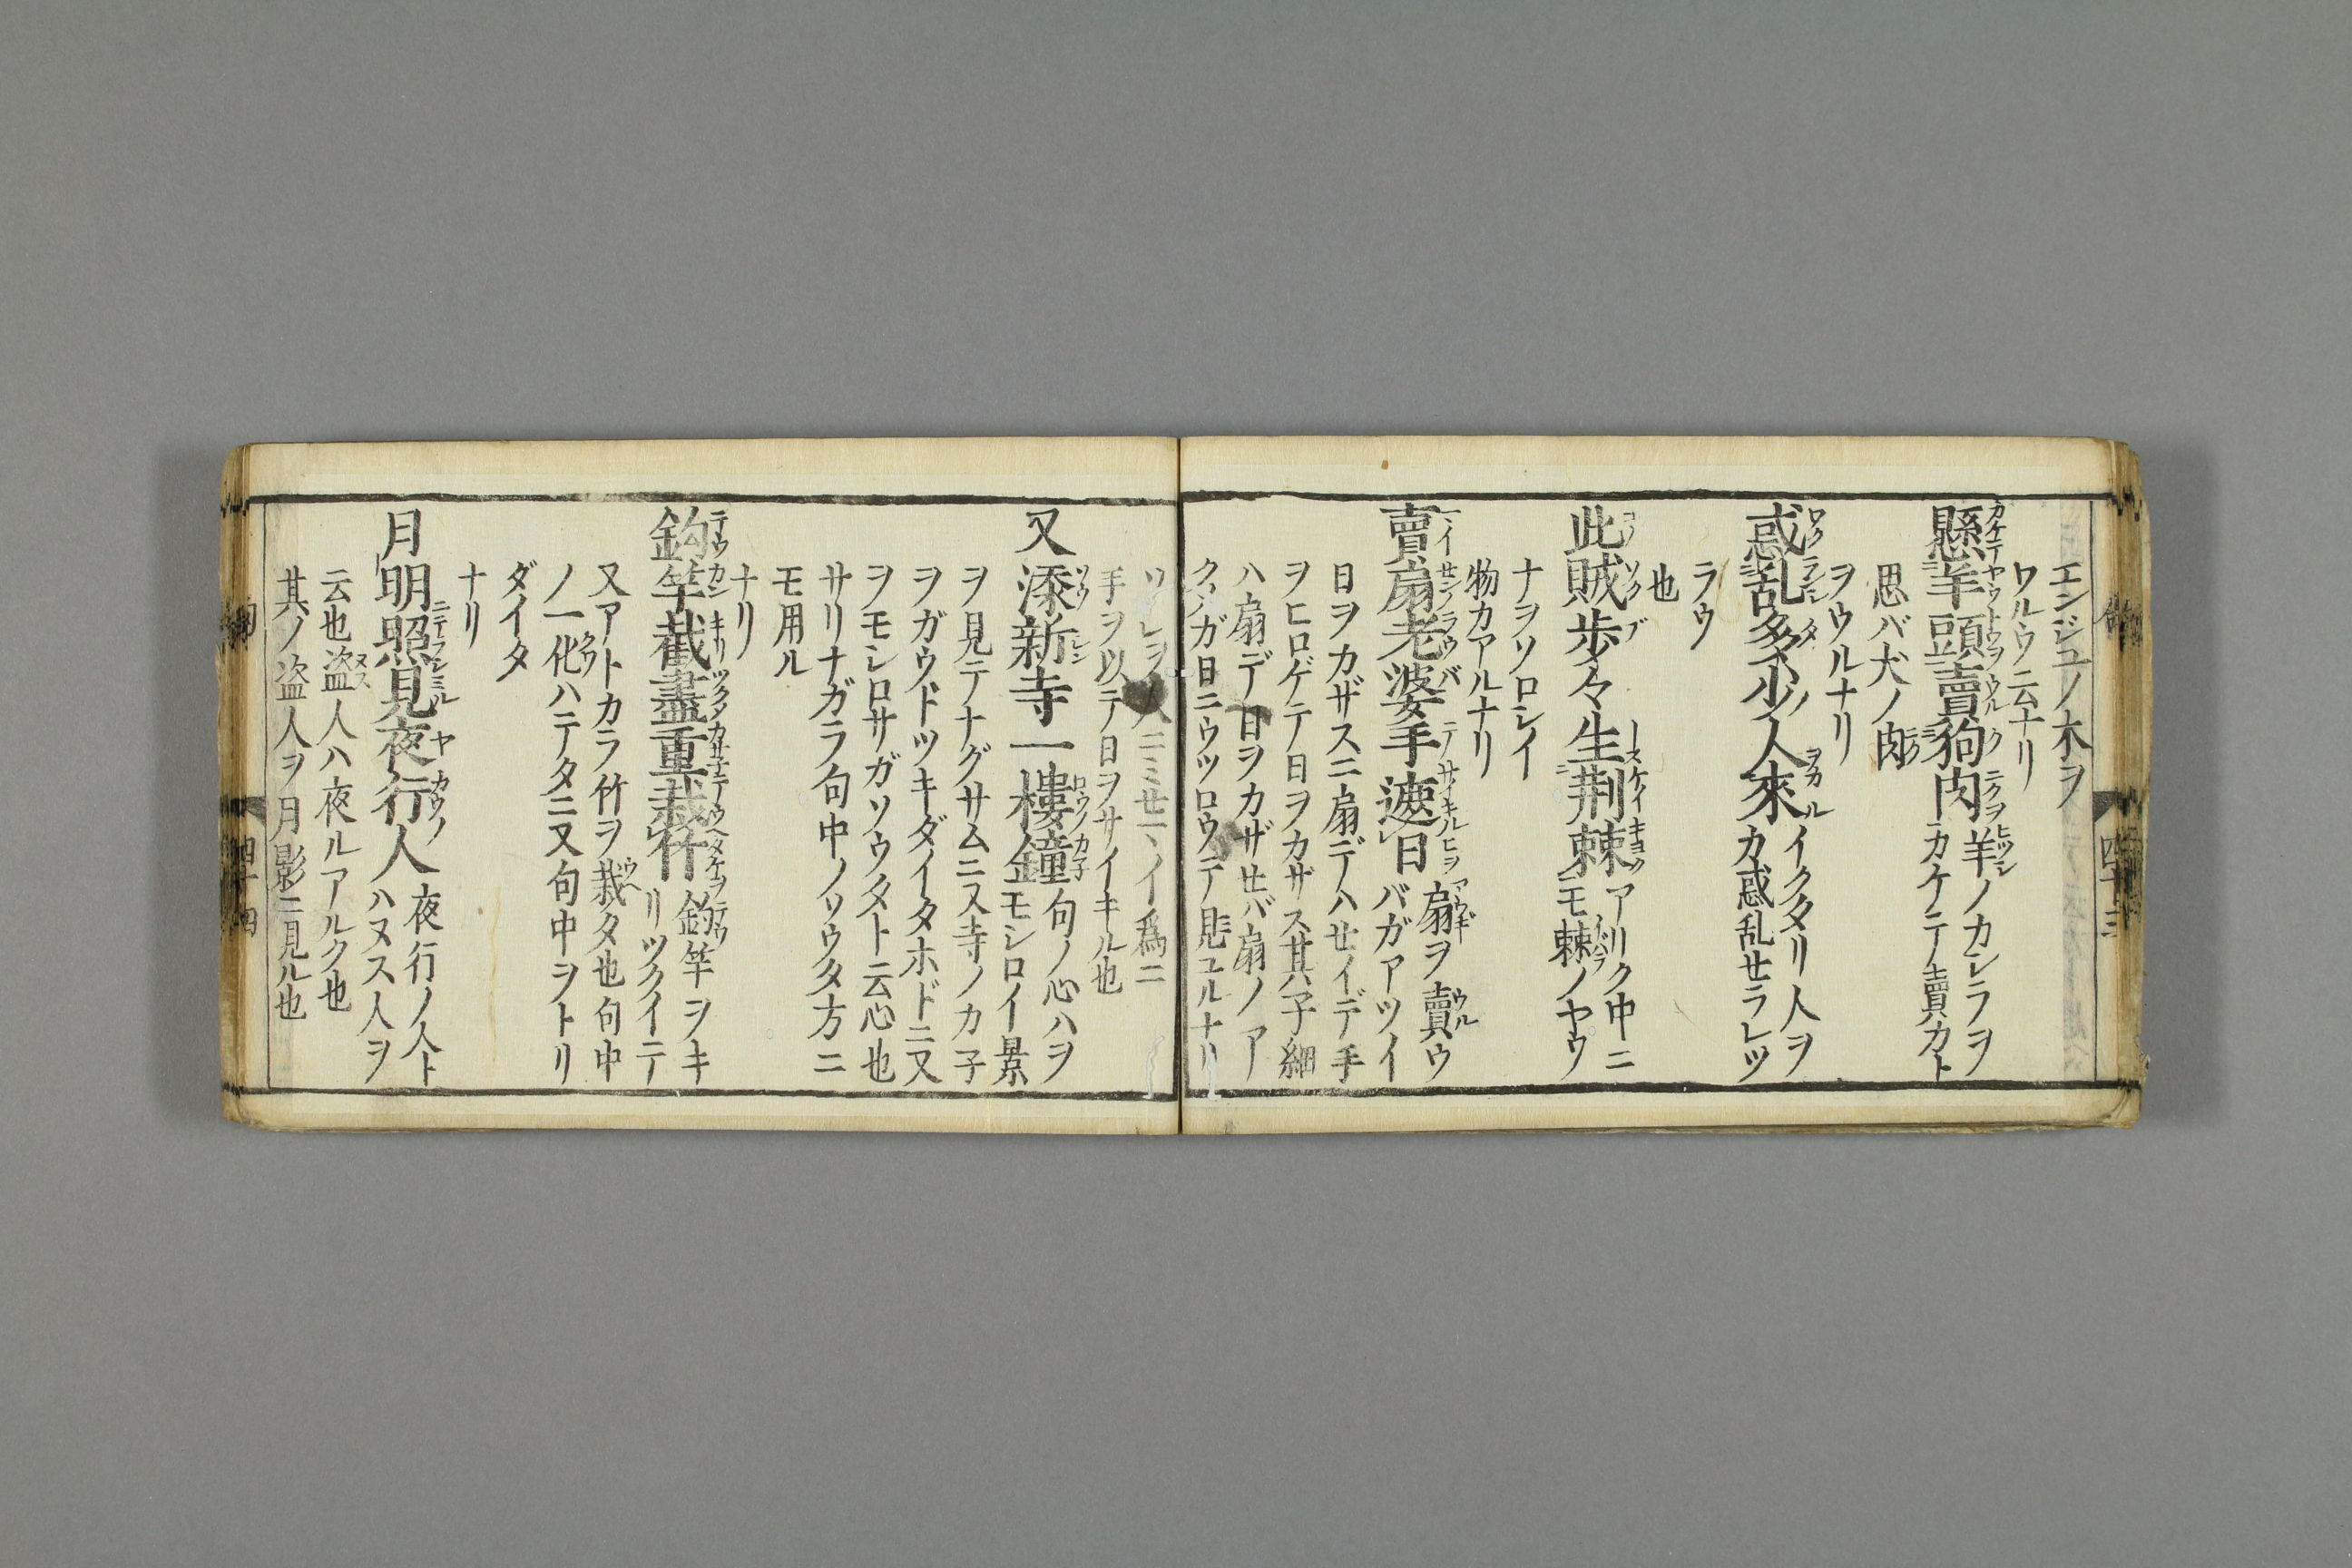 エンジユノ木ヲ
ワルウソ云ナリ
懸羊頭賣狗肉 羊ノカシラヲ
カケテ賣カト
思バ犬ノ肉
ヲウルナリ
惑乱多少人來 イクタリ人ヲ
カ惑乱セラレツ
ラウ
也
此賊歩々生荆棘 アリク中ニ
モ棘ノヤウ
ナヲソロシイ
物カアルナリ
賣扇老婆手遮日 扇ヲ賣ウ
バガアツイ
日ヲカザスニ扇デハせイデ手
ヲヒロゲテ日ヲカザス其子細
ハ扇デ日ヲカザせバ扇ノア
クソガ日ニウツロウテ見ユルナリ
手ヲ以テ日ヲサイキル也
又添新寺一樓鐘 句ノ心ハヲ
モシロイ景
ヲ見テナグサムニ又寺ノカ子
ヲガウドツキダイタホドニ又
ヲモシロサガソウタト云心也
サリナガラ句中ノソウタ方ニ
モ用ル
ナリ
釣竿截盡重栽竹 釣竿ヲキ
リツクイテ
又アトカラ竹ヲ栽タ也句中
ノ一化ハテタニ又句中ヲトリ
ダイタ
ナリ
月明照見夜行人 夜行ノ人ト
ハヌス人ヲ
云也盗人ハ夜ルアルク也
其ノ盗人ヲ月影ニ見ル也
四十三
四十四